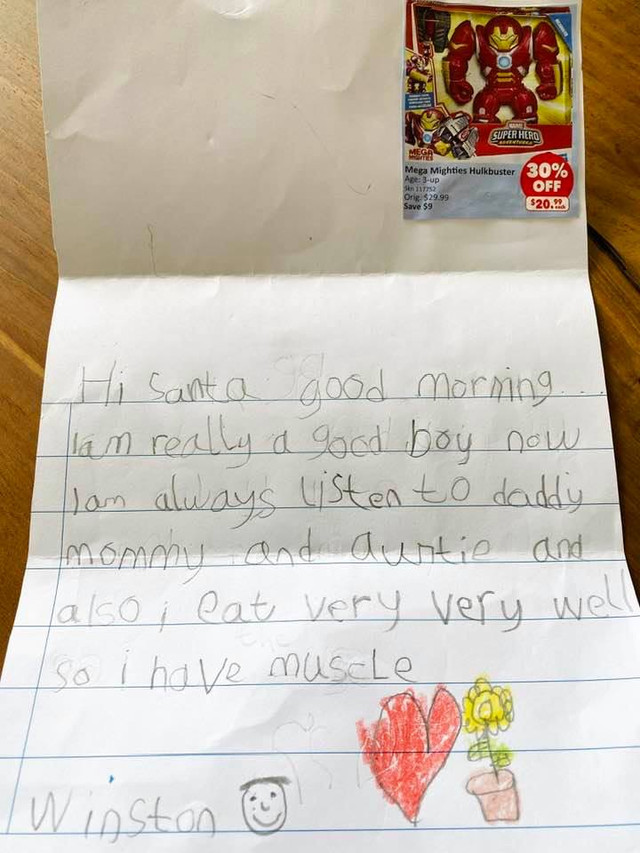 MARVEL
SUPER HERO
ADVENTURES
MEGA
MIGHTIES
Mega Mighties Hulkbuster
Age: 3-up
Skn 117252
Orig. $29.99
Save $9
30%
OFF
$20.99 each
Hi Santa good morning..
I am really a good boy now
I am always listen to daddy
mommy and auntie and
also i eat very very well
so i have muscle
Winston